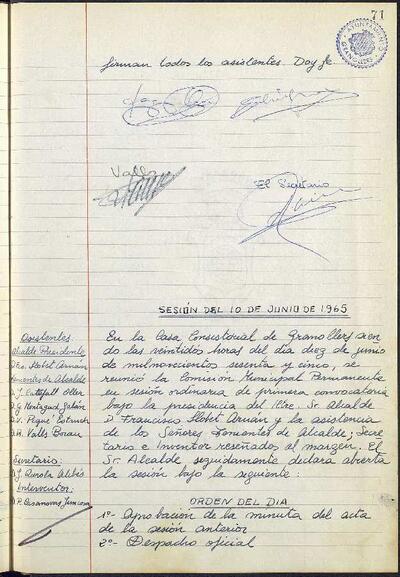 71
AYUNTAMIENTO
GRANOLLERS
firman todos los asistentes. Doy fe.
Valls
El Secretario
SESIÓN DEL 10 DE JUNIO DE 1965
Asistentes
Alcalde Presidente
Tenentes de Alcalde
Secretario:
Interventor:
En la Casa Consistorial de Granollers sien
do las veintidos horas del día diez de junio
de milnovecientos sesenta y cinco, se
reunió la Comisión Municipal Permanente
en sesión ordinaria de primera convocatoria
bajo la presidencia del Iltre. Sr. Alcalde
D. Francisco Llobet Arnán y la asistencia
de los Señores Tenentes de Alcalde; Secre
tario e Inventor reseñados al margen. El
Sr. Alcalde seguidamente declara abierta
la sesión bajo la siguiente:
ORDEN DEL DIA
1º- Aprobación de la minuta del acta
de la sesión anterior
2º- Despacho oficial